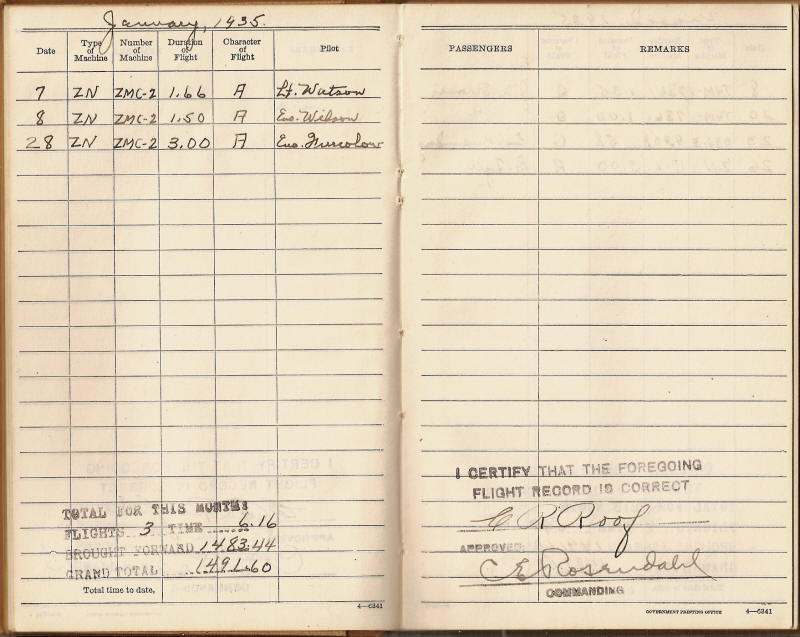 January, 1935.
Date Type of Machine Number of Machine Duration of Flight Character of Flight Pilot
7 ZN ZMC-2 1.66 A Lt. Watson
8 ZN ZMC-2 1.50 A Ens. Wilson
28 ZN ZMC-2 3.00 A Ens.
TOTAL FOR THIS MONTH:
FLIGHTS 3 TIME 6.16
BROUGHT FORWARD 1483.44
GRAND TOTAL 1491.60
Total time to date,
4—6241
PASSENGERS REMARKS
I CERTIFY THAT THE FOREGOING
FLIGHT RECORD IS CORRECT
C R Roof
APPROVED:
C E Rosendahl
COMMANDING
GOVERNMENT PRINTING OFFICE 4—6241